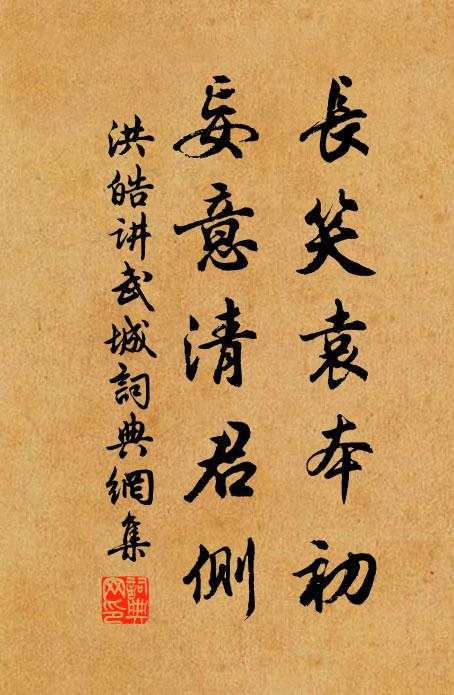 長笑袁本初
妄意清君側
洪皓讲武城詞典網集
詞典网印